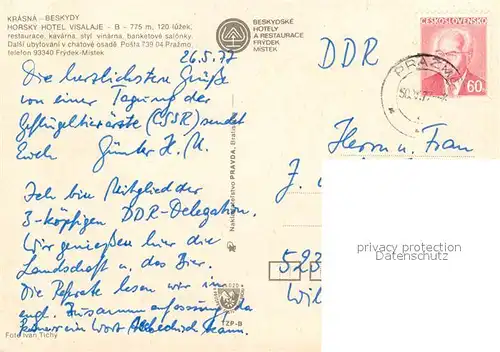 KRÁSNÁ – BESKYDY
HORSKÝ HOTEL VISALAJE – B – 775 m, 120 lůžek,
restaurace, kavárna, styl vinárna, banketové salónky.
Další ubytování v chatové osadě. Pošta 739 04 Pražmo,
telefon 93340 Frýdek-Místek
26.5.77
Die herzlichsten Grüße
von einer Tagung der
Geflügeltierärzte (ČSSR) sendet
Euch Günter H. U.
Ich bin Mitglied der
3-köpfigen DDR-Delegation.
Wir genießen hier die
Landschaft u. das Bier.
Die Referate lesen wir im
engl. Zusammenfassung, da
keiner ein Wort kann.
Foto Ivan Tichý
BESKYDSKÉ
HOTELY
A RESTAURACE
FRÝDEK
MÍSTEK
Nakladatelství PRAVDA, Bratis
TZP-B
DDR
ČESKOSLOVENSKO
60
PRAŽMO
Herrn u. Frau
J.
523
Wil
privacy protection
Datenschutz